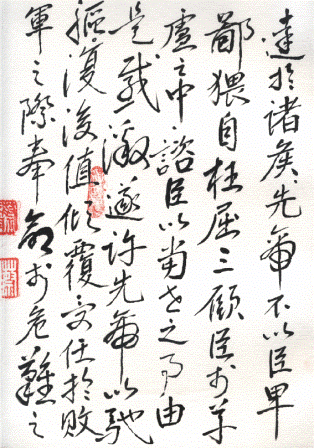 達於諸侯先帝不以臣卑
鄙猥自枉屈三顧臣於草
廬之中諮臣以當世之事由
是感激遂許先帝以馳
驅復後值傾覆受任於敗
軍之際奉命於危難之